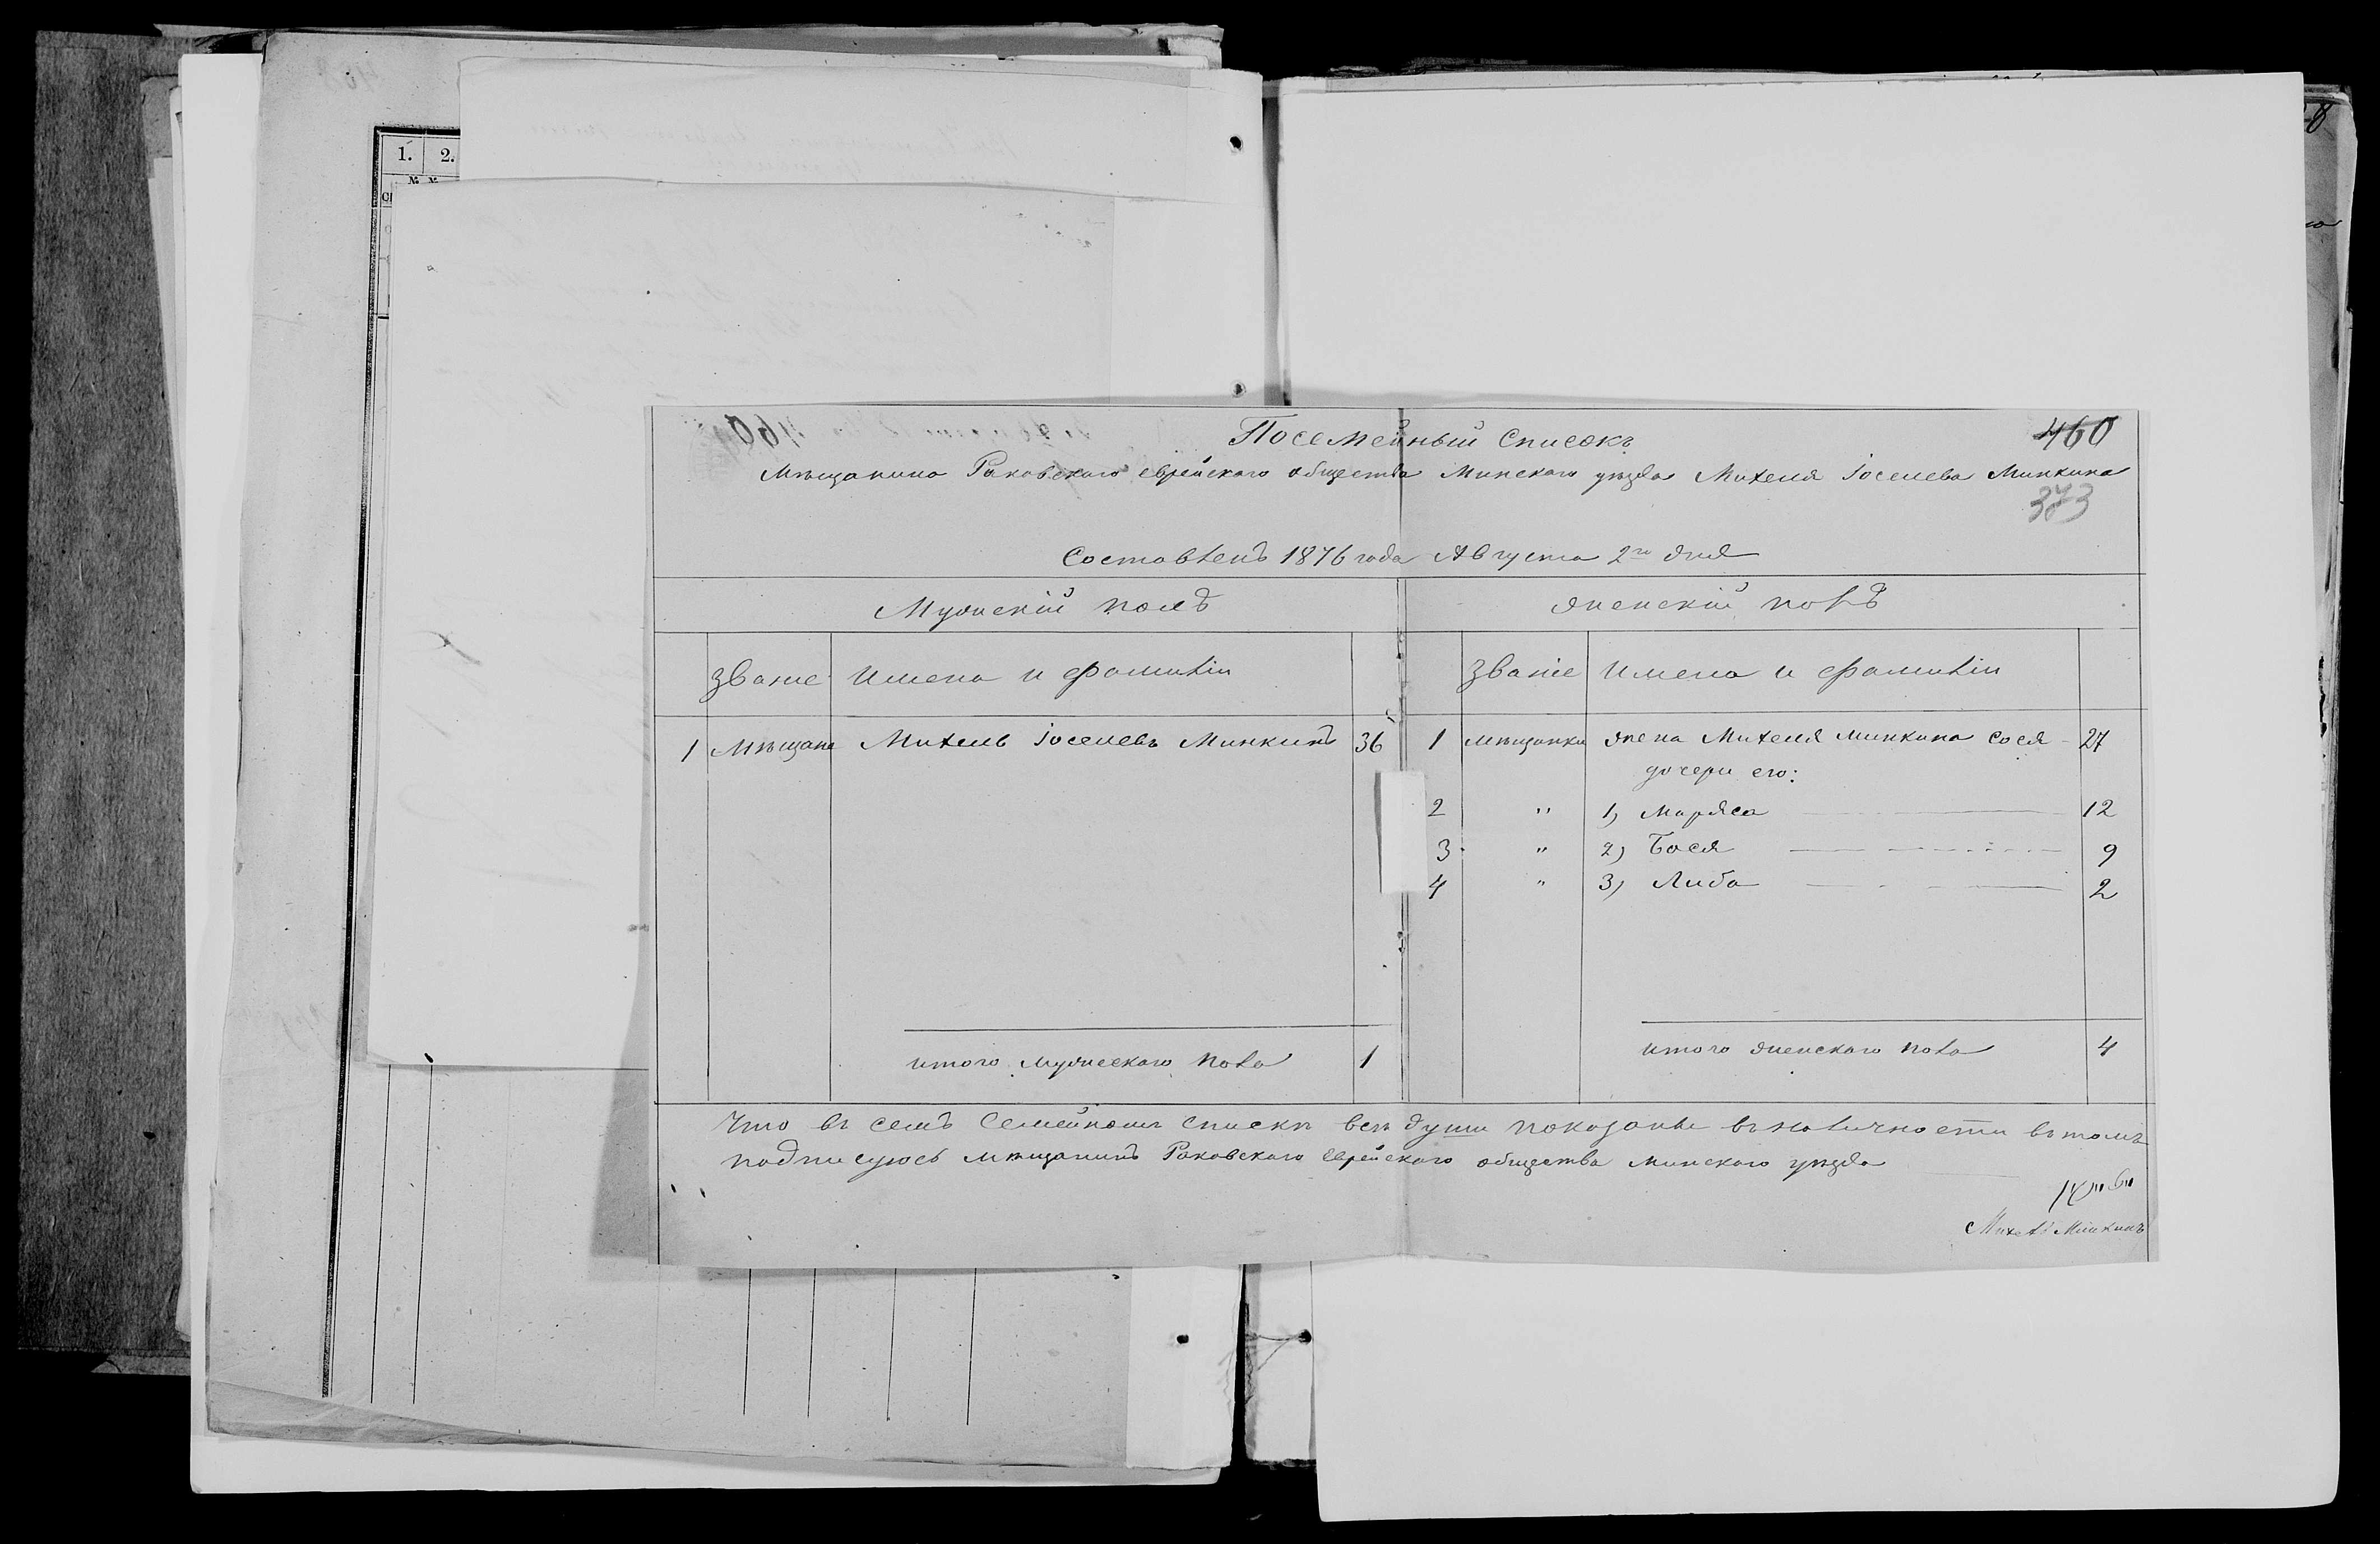 1. 2.
№ №
460
Посемейный Списокъ
Мѣщанина Раковскаго еврейскаго общества Минскаго уѣзда Михеля Іоселева Минкина
373
Составленъ 1876 года Августа 2го дня
Мужескій полъ женскій полъ
Званіе Имена и фамиліи Званіе Имена и фамиліи
1 Мѣщане Михель Іоселевъ Минкинъ 36 1 мѣщанки жена Михеля Минкина Сося 27
дочери его:
2 " 1) Маряса 12
3 " 2) Бася 9
4 " 3) Либа 2
итого мужескаго пола 1 итого женскаго пола 4
Что въ семъ Семейномъ спискѣ всѣ души показаны въ наличности въ томъ
подписуюсь мѣщанинъ Раковскаго Еврейскаго общества минскаго уѣзда
Михель Минкинъ